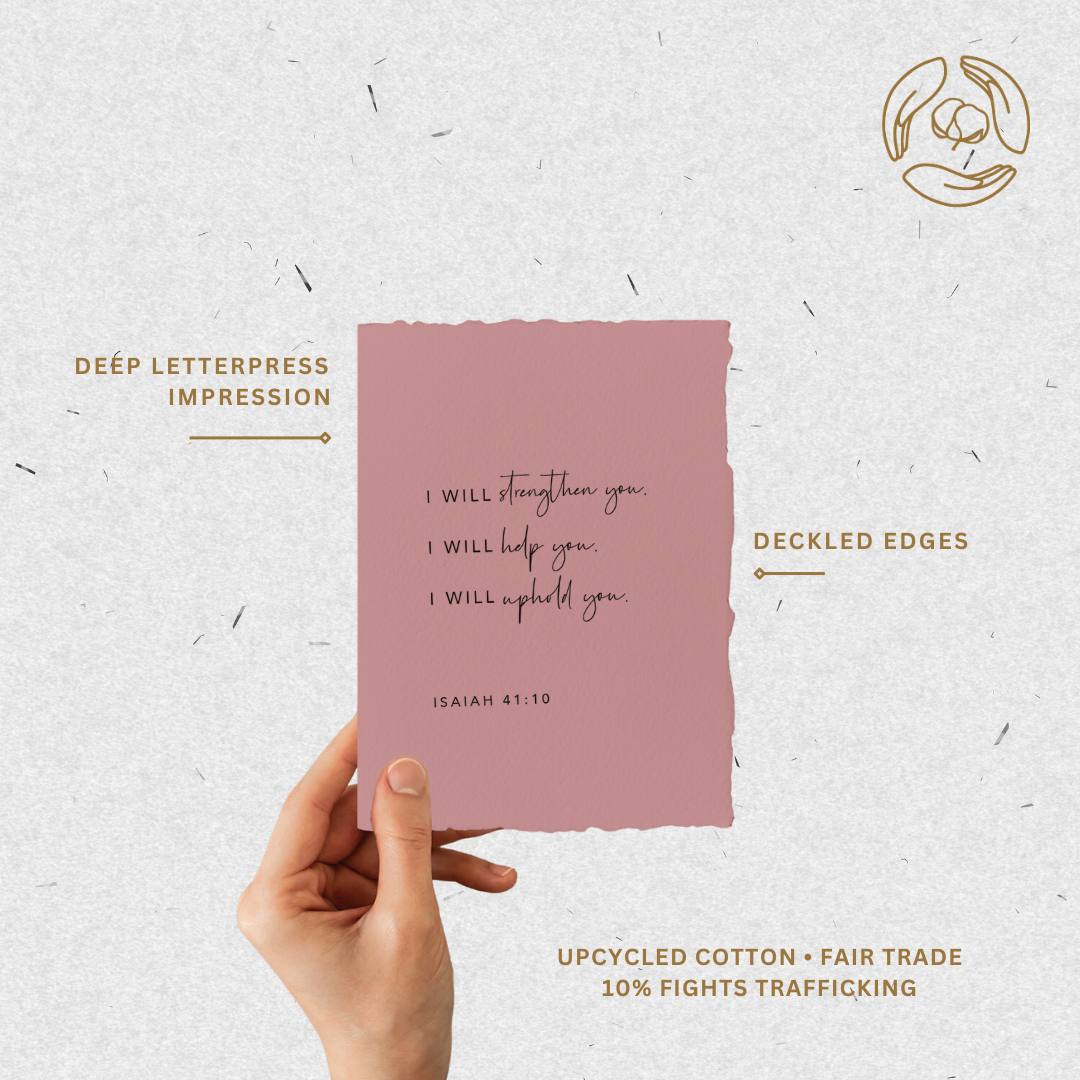 DEEP LETTERPRESS
IMPRESSION
I WILL strengthen you.
I WILL help you.
I WILL uphold you.
ISAIAH 41:10
DECKLED EDGES
UPCYCLED COTTON • FAIR TRADE
10% FIGHTS TRAFFICKING